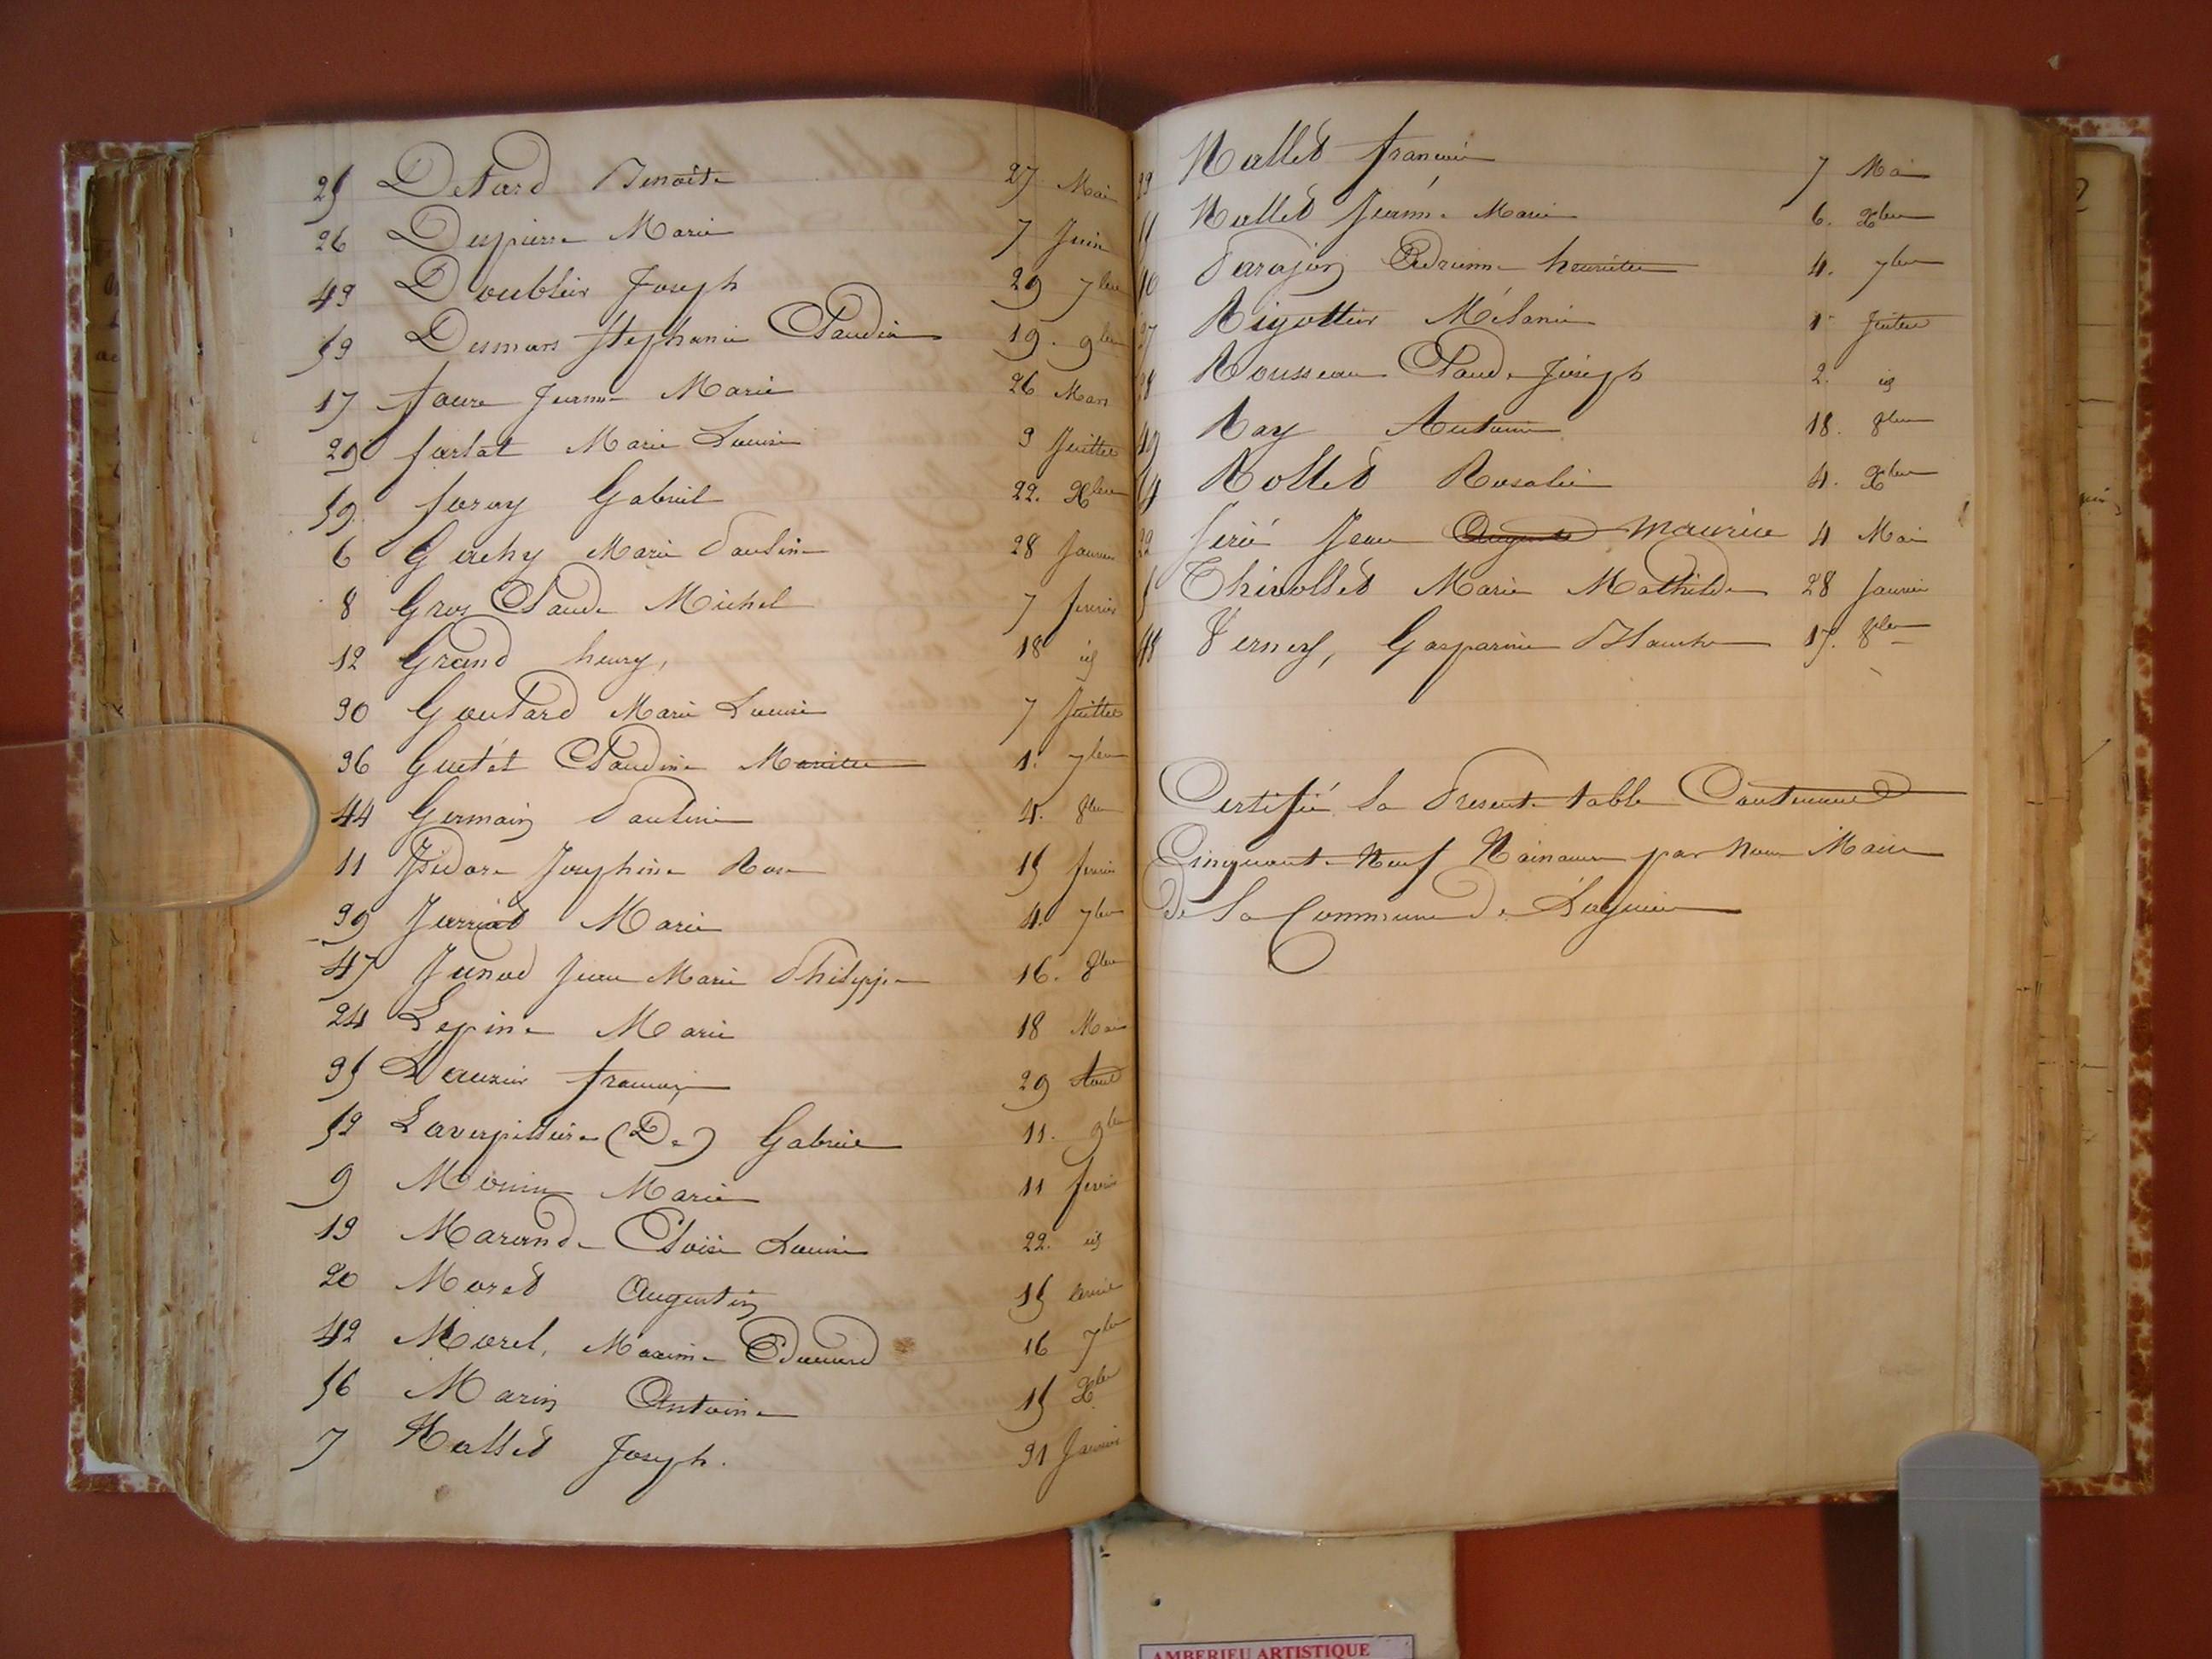 25 Delard Benoîte 27 Mai
26 Despierre Marie 7 Juin
43 Doublier Joseph 23 7bre
53 Desmars Stéphanie Claudia 19. 9bre
17 faure Jeanne Marie 26 Mars
29 farlat Marie Louise 3 Juillet
59 foray Gabriel 22. Xbre
6 Marie Pauline 28 Janvier
8 Gros Claude Michel 7 fevrier
12 Grand henry, 18 id
30 Goulard Marie Louise 7 Juillet
36 Guétat Claudine Mariette 1. 7bre
44 Germain Pauline 4. 8bre
11 Isidore Josephine Rose 15 fevrier
39 Jarriat Marie 4. 7bre
47 Junod Jean Marie Philippe 16. 8bre
24 Lepine Marie 18 Mai
35 Lauzier françois 29 Aout
52 Laverpillière (De) Gabriel 11. 9bre
9 Monin Marie 11 fevrier
13 Marande Cloise Louise 22. id
20 Moret Augustin 15 avril
42 Morel, Maxime Edouard 16 7bre
56 Marin Antoine 15 Xbre
7 Nallet Joseph. 31 Janvier
23 Nallet francois 7 Mai
Nallet Jeanne Marie 6. Xbre
Parajon Adrienne henriette 4. 7bre
27 Rigottier Mélanie 1er Juillet
28 Rousseau Claude Joseph 2. id
49 Ray Antoine 18. 8bre
Rollet Rosalie 4. Xbre
22 Jean Auguste Maurice 4 Mai
5 Thivollet Marie Mathilde 28 Janvier
48 Verney, Gasparine Blanche 17. 8bre
Certifié la Present table Contenant
Cinquante Neuf Naissances par Nous Maire
de la Commune de Lagnieu
AMBERIEU ARTISTIQUE